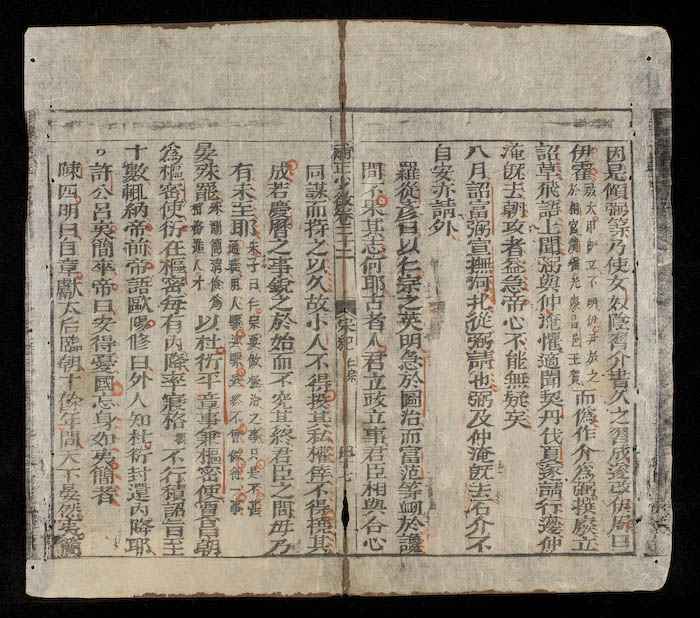 因是傾弼等乃使女奴陰習介書久之習成遂改伊周曰
伊霍 立不明伊尹放之於桐宮 霍光廢昌邑王賀 而偽作介為弼撰廢立
詔草飛語上聞弼與仲淹懼適聞契丹伐夏遂請行邊仲
淹既去朝攻者益急帝心不能無疑矣
八月詔富弼宣撫河北從弼請也弼及仲淹既去石介不
自安亦請外
羅從彥曰以仁宗之英明急於圖治而富范等 於讒
間不果其志何耶古者人君立政立事君臣相與合心
少微 卷 十二 宋紀 仁宗 四十七
同謀而持之以久故小人不得措其私權倖不得撓其
成若慶曆之事銳之於始而不究其終君臣之間毋乃
有未至耶 朱子曰仁宗 做 治之事只是不甚 用人驟進驟退終不曾做得一事
晏殊罷 殊剛簡清儉為相務進人才 以杜衍平章事兼樞密使賈昌朝
為樞密使衍在樞密每有內降率寢格 不行積詔旨至
十數輒納帝前帝語歐陽修曰外人知杜衍封還內降耶
許公呂夷簡卒帝曰安得憂國忘身如夷簡者
陳四明曰自章獻太后臨朝十餘年間天下晏然夷簡